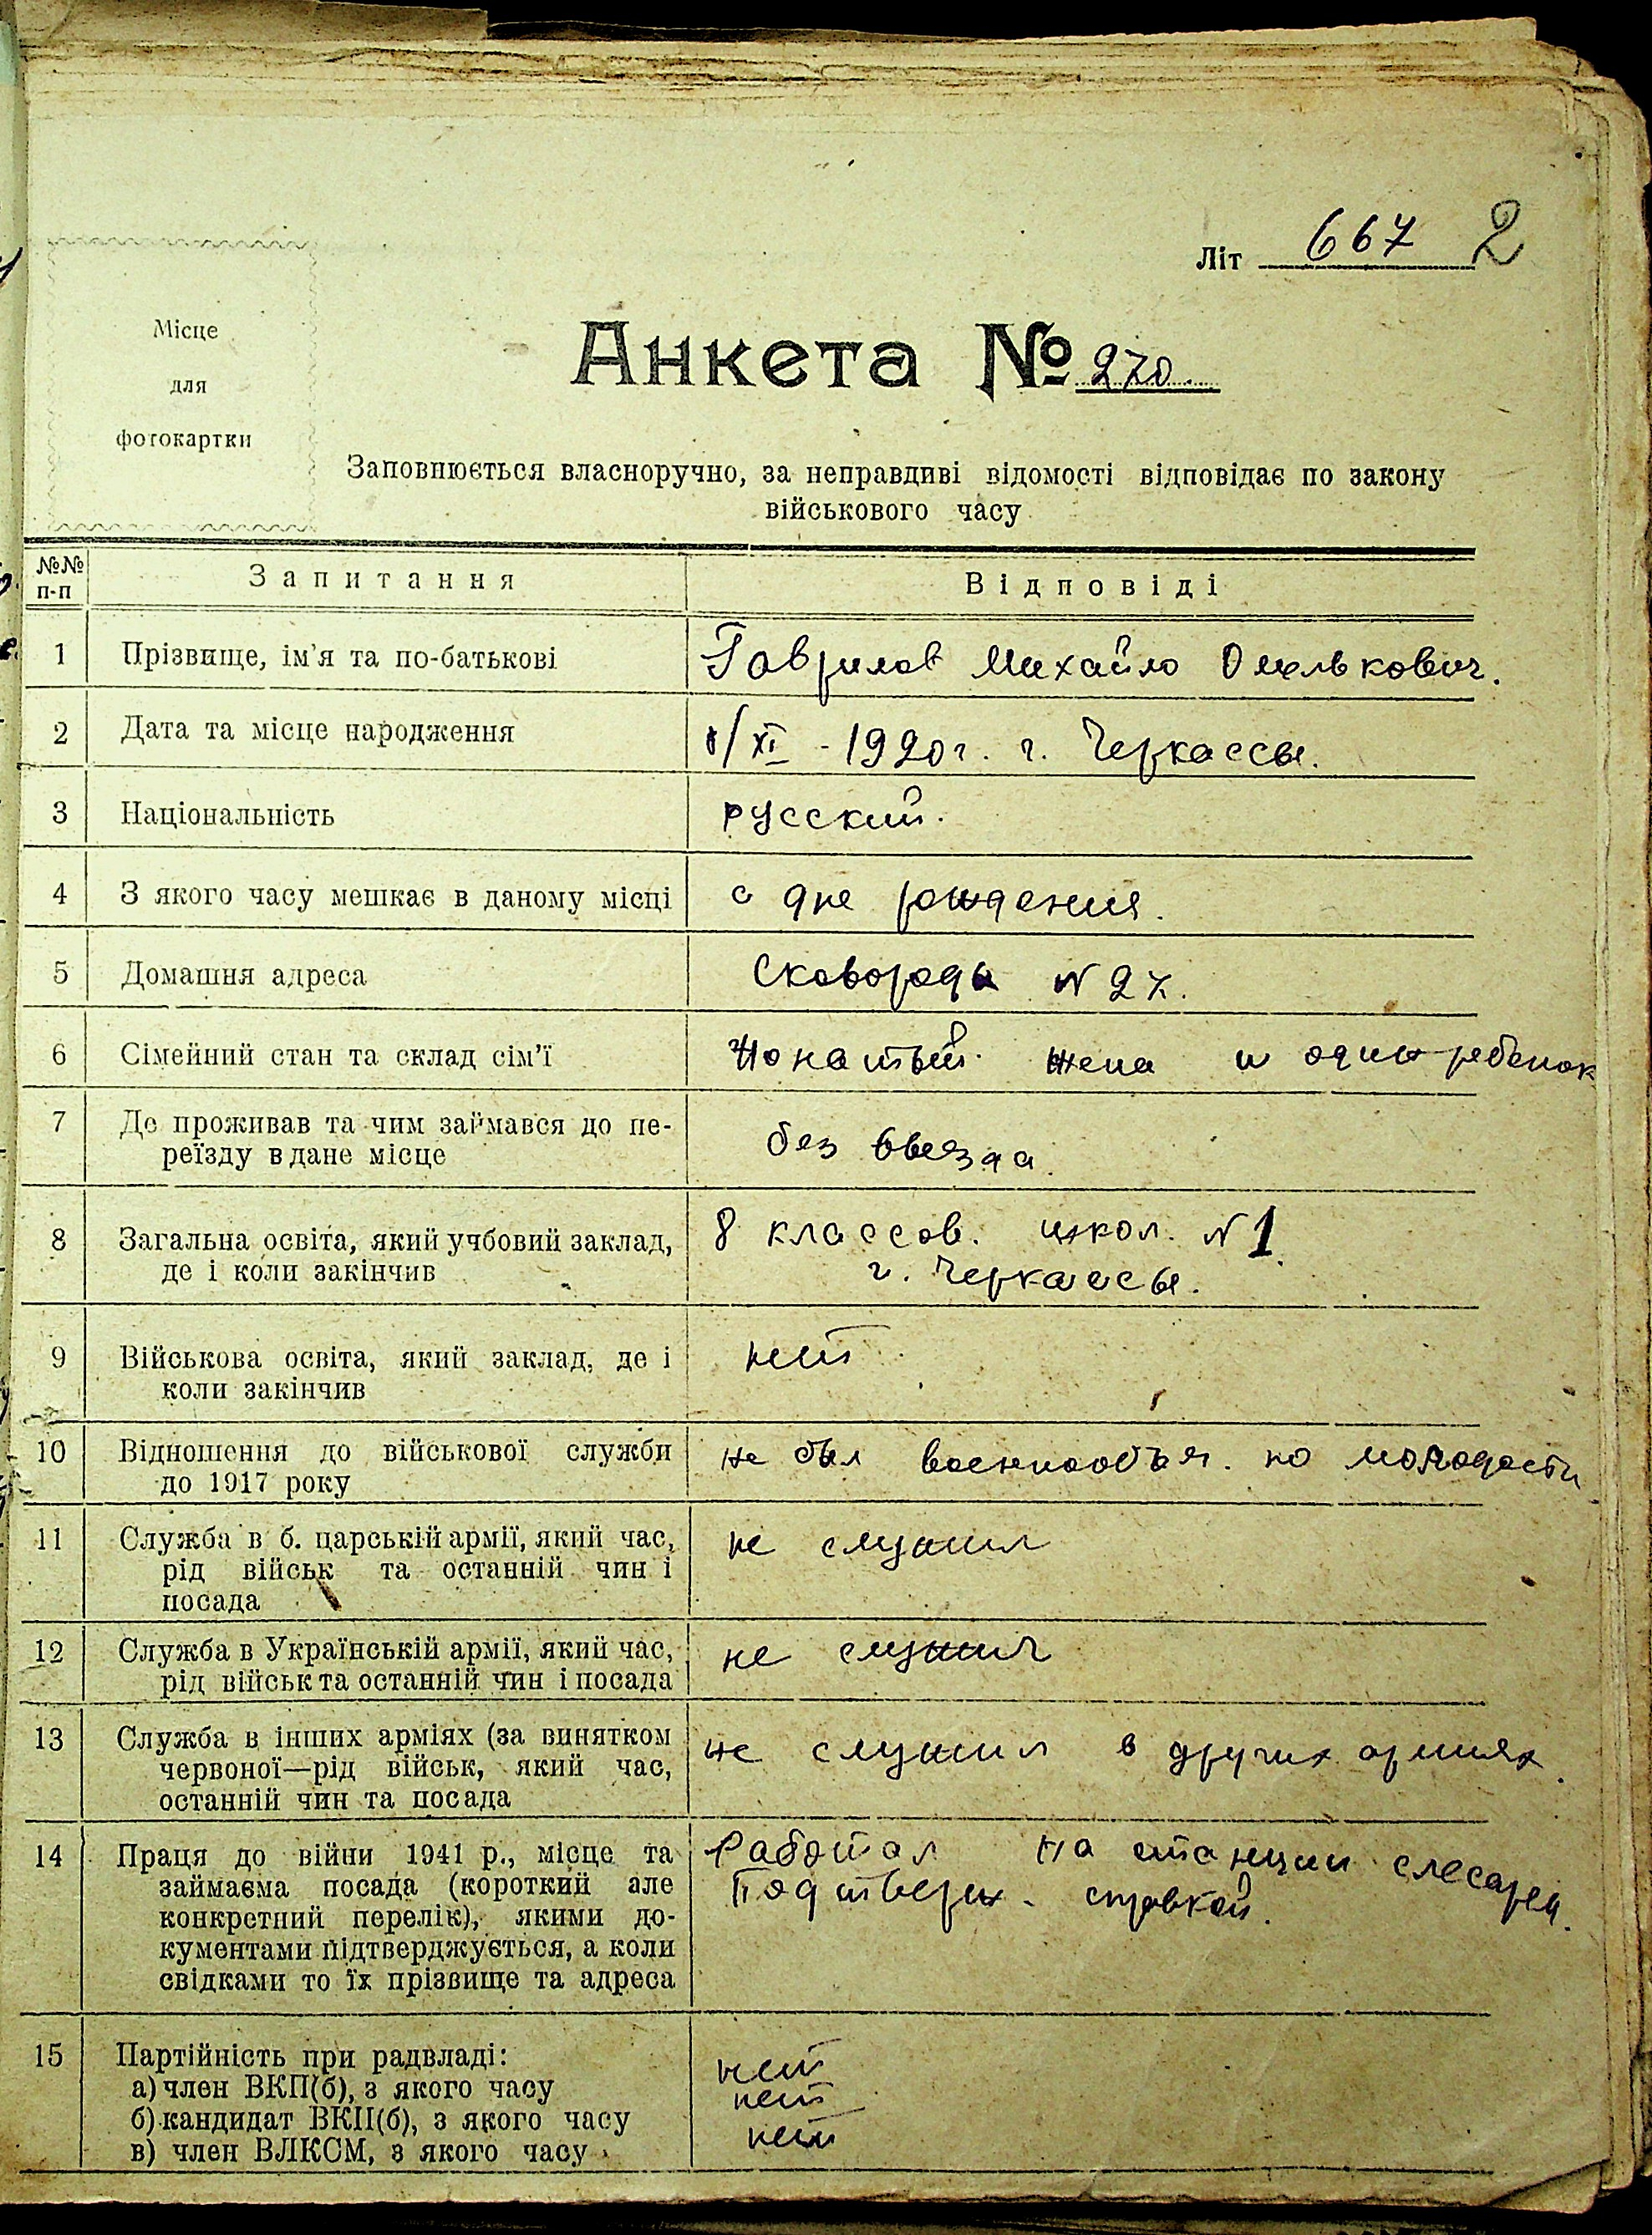 Літ 667 2
Місце
для
фотокартки
Анкета № 270
Заповнюється власноручно, за неправдиві відомості відповідає по закону
військового часу
№№ п-п Запитання Відповіді
1 Прізвище, ім'я та по-батькові Гаврилов Михайло Омелькович.
2 Дата та місце народження 8/XI - 1920 г. г. Черкассы.
3 Національність русский.
4 З якого часу мешкає в даному місці с дне рождения.
5 Домашня адреса Сковороды N 27.
6 Сімейний стан та склад сім'ї Жонатый. жена и один ребенок
7 Де проживав та чим займався до пе-
реїзду в дане місце без
8 Загальна освіта, який учбовий заклад, 8 классов. школ. N 1.
де і коли закінчив г. Черкассы.
9 Військова освіта, який заклад, де і нет
коли закінчив
10 Відношення до військової служби не был военнообяз. по молодости
до 1917 року
11 Служба в б. царській армії, який час, не служил
рід військ та останній чин і
посада
12 Служба в Українській армії, який час, не служил
рід військ та останній чин і посада
13 Служба в інших арміях (за винятком не служил в других армиях.
червоної—рід військ, який час,
останній чин та посада
14 Праця до війни 1941 р., місце та Работал на станции слесарем.
займаєма посада (короткий але Подтверж. справкой.
конкретний перелік), якими до-
кументами підтверджується, а коли
свідками то їх прізвище та адреса
15 Партійність при радвладі:
а) член ВКП(б), з якого часу нет
б) кандидат ВКП(б), з якого часу нет
в) член ВЛКСМ, з якого часу нет